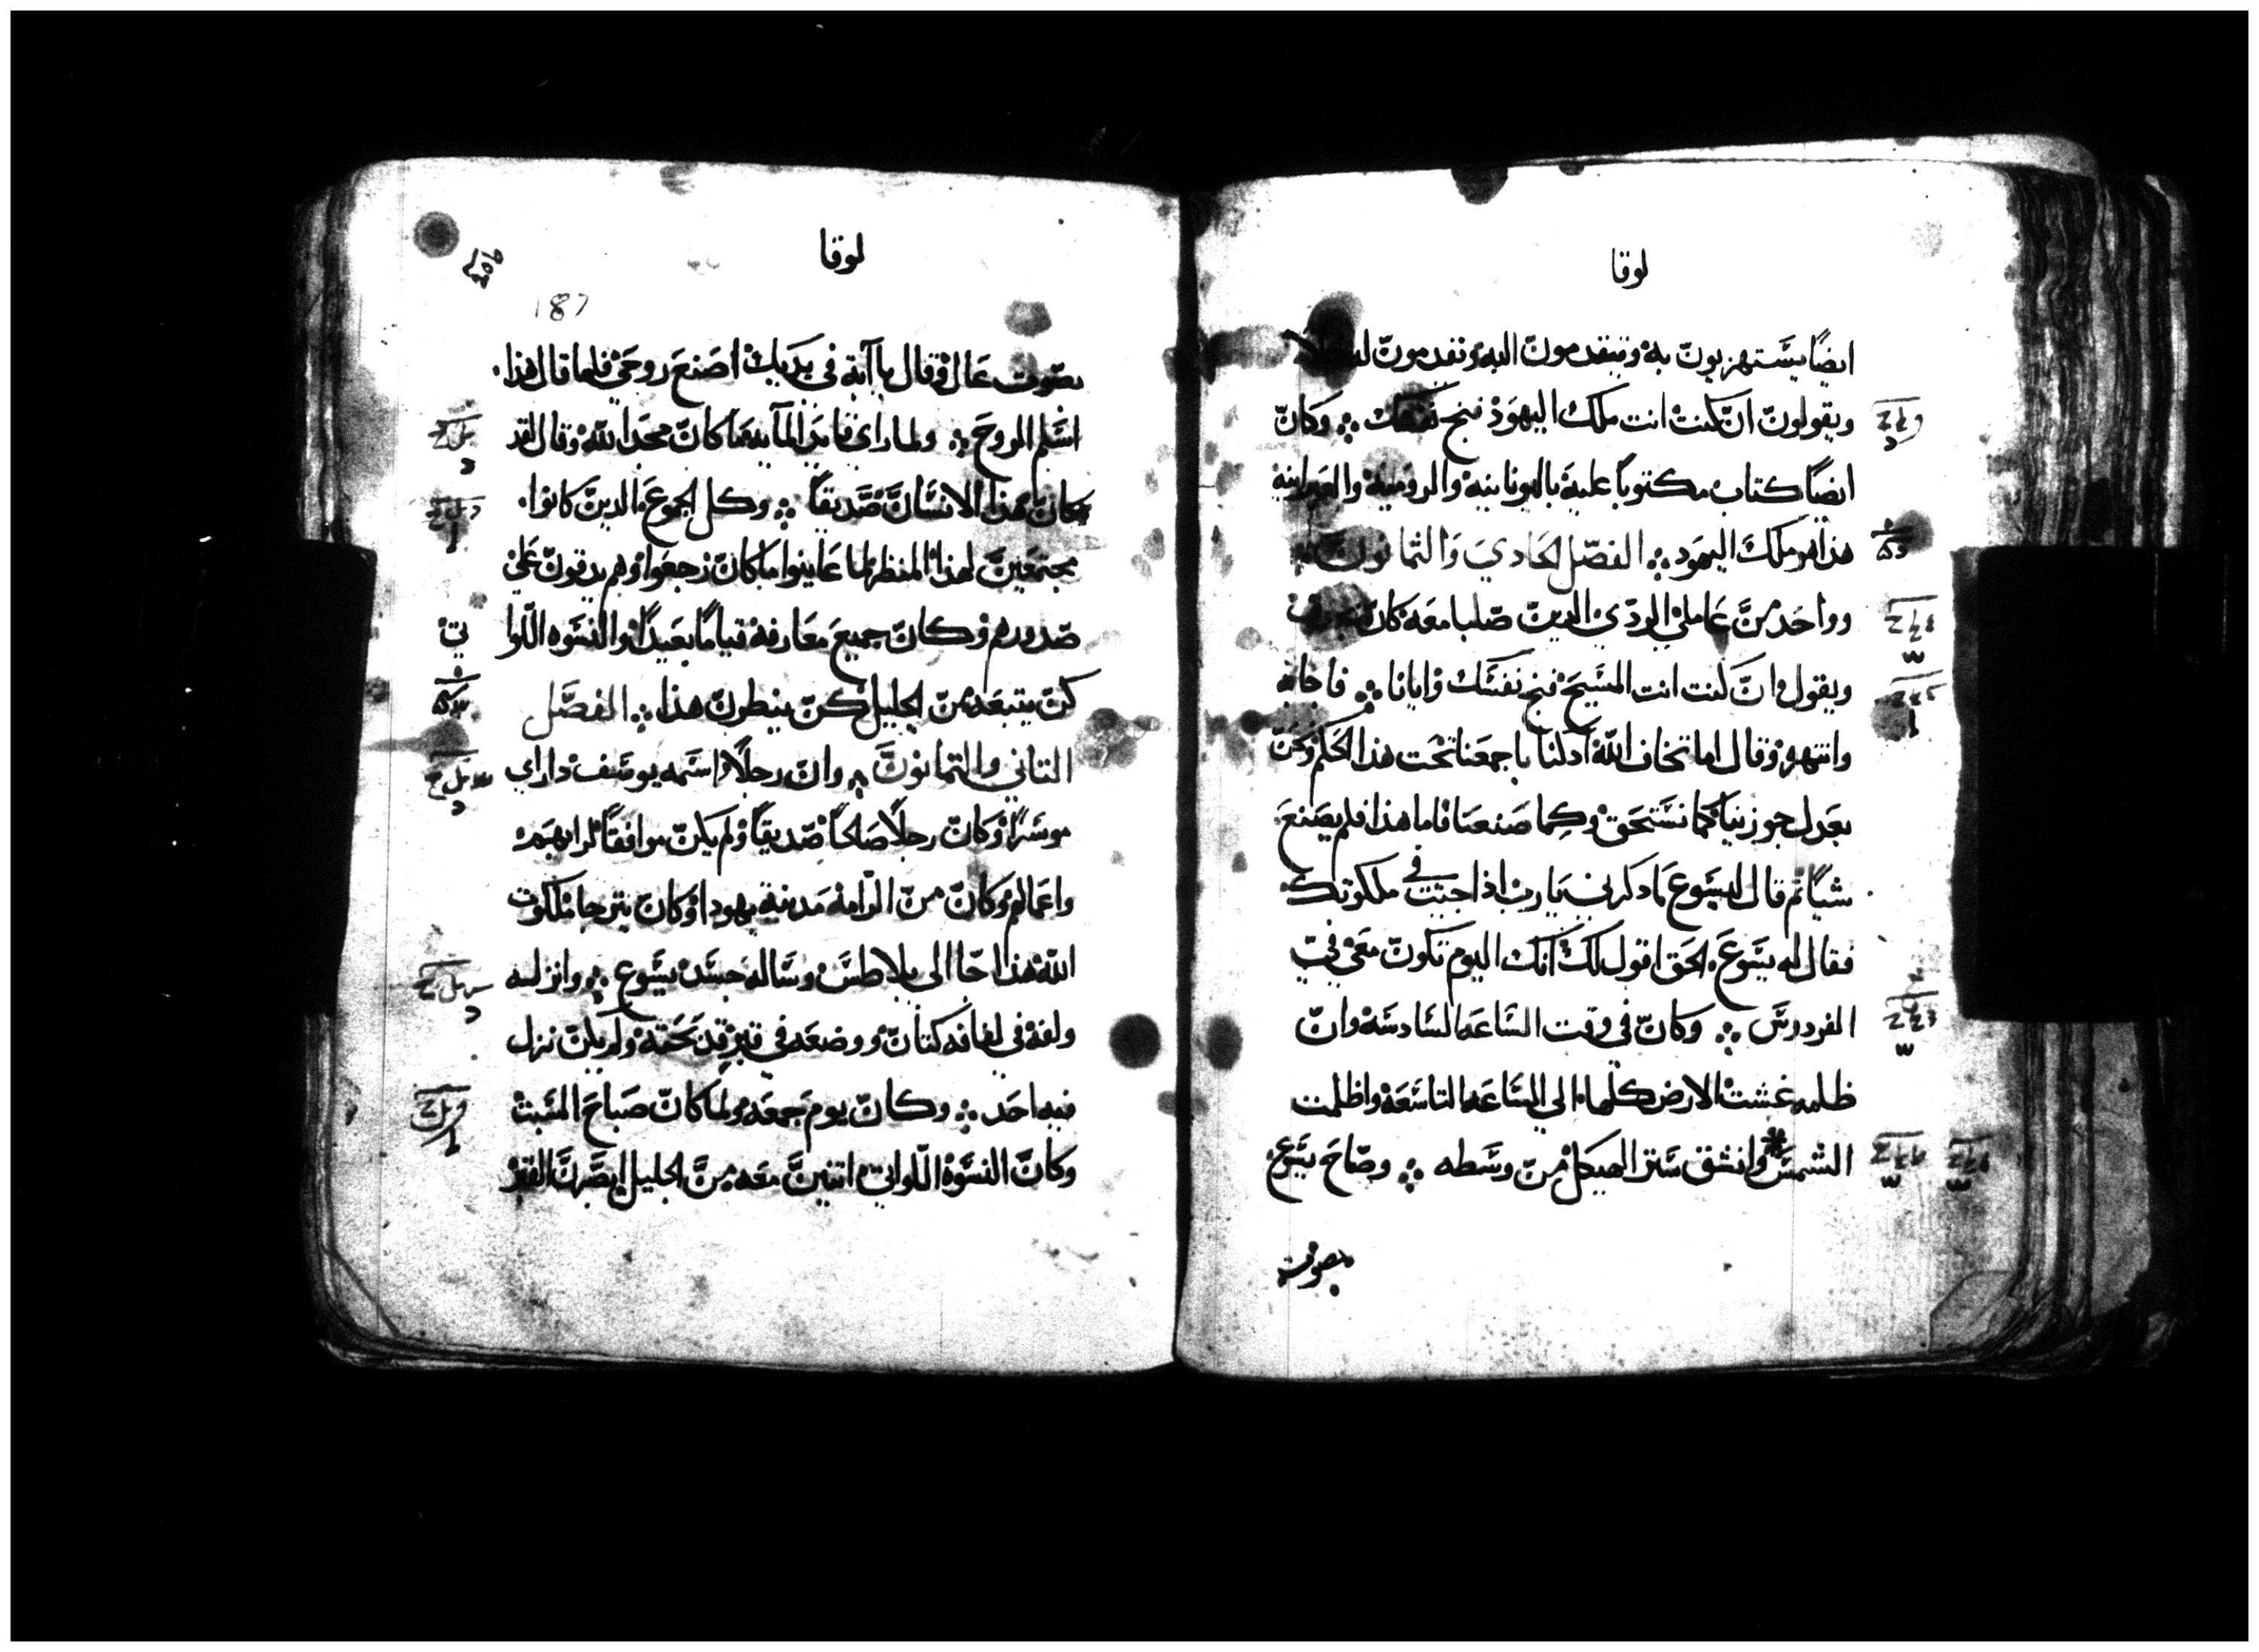 لوقا
ايضًا يستهزيون به ويتقدمون اليه ويقدمون له
ويقولون ان كنت انت ملك اليهود فنج نفسك ؞ وكان
ايضًا كتاب مكتوبًا عليه باليونانيه والروميه والعبرانيه
هذا هو ملك اليهود ؞ الفصل الحادي والثمانون
وواحد من عاملي الردي الدين صلبا معه كان
ويقول ان كنت انت المسيح فنج نفسك وايانا ؞ فاجابه
وانتهره وقال اما تخاف الله ادلنا باجمعنا تحت هذا الحكم ونحن
بعدل جوزينا كما نستحق وكما صنعنا فاما هذا فلم يصنع
شيًا ثم قال ليسوع ادكرني يارب اذا جيت في ملكوتك
فقال له يسوع الحق اقول لك انك اليوم تكون معي في
الفردوس ؞ وكان في وقت الساعه السادسه وان
ظلمه غشت الارض كلها الي الساعه التاسعه واظلمت
الشمس وانشق ستر الهيكل من وسطه ؞ وصاح يسوع
بصوت
لوقا
187
بصوت عال وقال يا آبة في يديك اصنع روحي فلما قال هذا
اسلم الروح ؞ ولما راي قايد المآيه ما كان مجد الله وقال لقد
كان هذا الانسان صديقًا ؞ وكل الجموع الدين كانوا
مجتمعين لهذا المنظر لما عاينوا ما كان رجعوا وهم يدقون علي
صدورهم وكان جميع معارفه قيامًا بعيدًا والنسوه اللوا
تي
كن يتبعنه من الجليل كن ينظرن هذا ؞ الفصل
التاني والتمانون ؞ وان رجلًا اسمه يوسف داراي
موسرًا وكان رجلًا صالحًا صديقًا ولم يكن موافقًا لرايهم
واعمالهم وكان من الرامه مدينة يهودا وكان يترجا ملكوت
الله هذا جا الى بلاطس وساله جسد يسوع ؞ وانزله
ولفه في لفافه كتان ووضعه في قبر قد نحته ولم يكن نزل
فيه احد ؞ وكان يوم جمعه ولما كان صباح السبت
وكان النسوه اللواتي اتين معه من الجليل ابصرن القبر